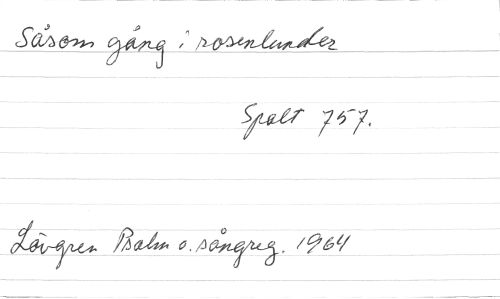 Såsom gång i rosenlunder
Spalt 757.
Lövgren Psalm o. sångreg. 1964